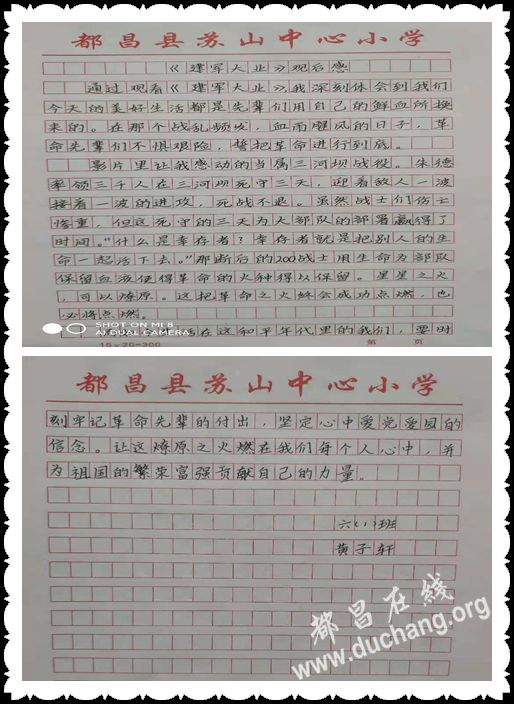 都昌县苏山中心小学
《建军大业》观后感
通过观看《建军大业》,我深刻体会到我们
今天的美好生活都是先辈们用自己的鲜血所换
来的。在那个战乱频发,血雨腥风的日子,革
命先辈们不惧艰险,誓把革命进行到底。
影片里让我感动的当属三河坝战役。朱德
率领三千人在三河坝死守三天,迎着敌人一波
接着一波的进攻,死战不退。虽然战士们伤亡
惨重,但这死守的三天为大部队的部署赢得了
时间。“什么是幸存者?幸存者就是把别人的生
命一起活下去。”那断后的200战士用生命为部队
保留血液使得革命的火种得以保留。星星之火
,可以燎原。这把革命之火终会成功点燃,也
必将点燃。
在这和平年代里的我们,要时
SHOT ON MI 8
AI DUAL CAMERA
15×20=300
第 页
都昌县苏山中心小学
刻牢记革命先辈的付出,坚定心中爱党爱国的
信念。让这燎原之火燃在我们每个人心中,并
为祖国的繁荣富强贡献自己的力量。
六(1)班
黄子轩
都昌在线
www.duchang.org